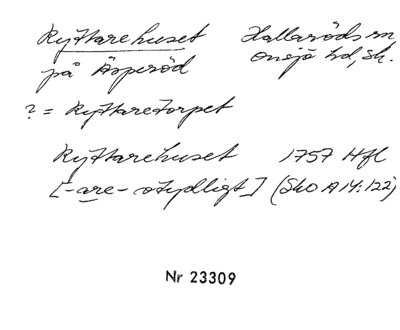 Ryttarehuset Hallaröds sn
på Äsperöd Onsjö hd, Sk.
? = Ryttaretorpet
Ryttarehuset 1757 Hfl
[-are- otydligt] (SkO A14:122)
Nr 23309